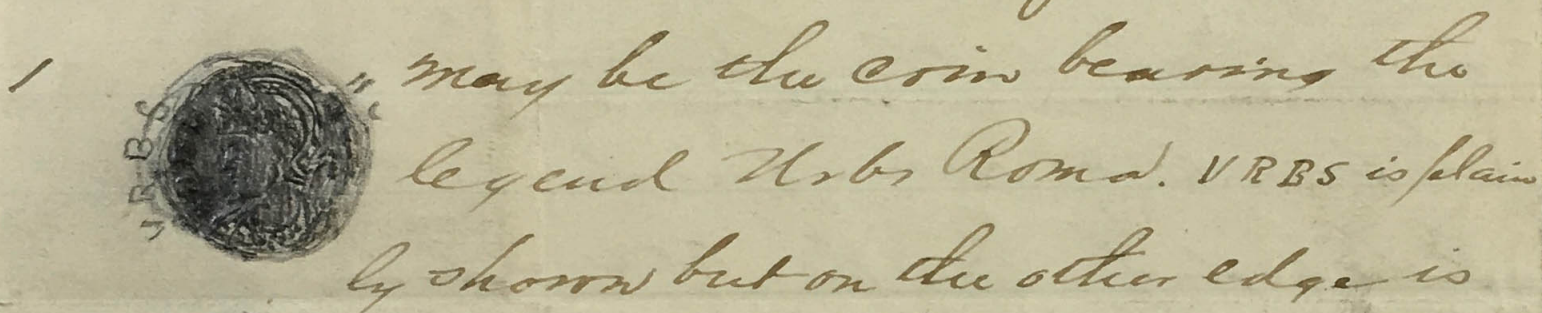 1 VRBS " may be the coin bearing the
legend Urbs Roma. VRBS is plain
ly shown but on the other edge is